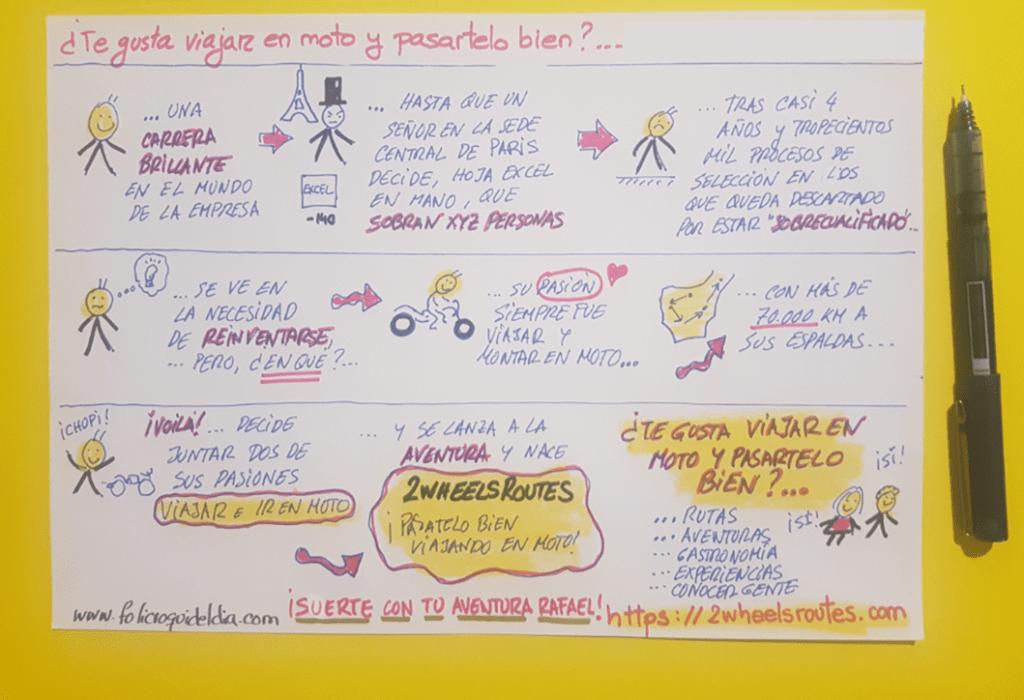 ¿Te gusta viajar en moto y pasartelo bien?...
... UNA
CARRERA
BRILLANTE
EN EL MUNDO
DE LA EMPRESA
EXCEL
-140
... HASTA QUE UN
SEÑOR EN LA SEDE
CENTRAL DE PARIS
DECIDE, HOJA EXCEL
EN MANO, QUE
SOBRAN XYZ PERSONAS
... TRAS CASI 4
AÑOS Y TROPECIENTOS
MIL PROCESOS DE
SELECCIÓN EN LOS
QUE QUEDA DESCARTADO
POR ESTAR "SOBRECUALIFICADO"...
... SE VE EN
LA NECESIDAD
DE REINVENTARSE,
... PERO, ¿EN QUÉ?...
... SU PASIÓN
SIEMPRE FUE
VIAJAR Y
MONTAR EN MOTO...
... CON MÁS DE
70.000 KM A
SUS ESPALDAS...
¡CHOPI!
¡VOILÁ! ... DECIDE
JUNTAR DOS DE
SUS PASIONES
VIAJAR E IR EN MOTO
... Y SE LANZA A LA
AVENTURA Y NACE
2WHEELSROUTES
¡PÁSATELO BIEN
VIAJANDO EN MOTO!
¿TE GUSTA VIAJAR EN
MOTO Y PASARTELO
BIEN?...
¡SÍ!
¡SÍ!
... RUTAS
... AVENTURAS
... GASTRONOMÍA
... EXPERIENCIAS
... CONOCER GENTE
www.folicroquideldia.com
¡SUERTE CON TU AVENTURA RAFAEL!
https://2wheelsroutes.com